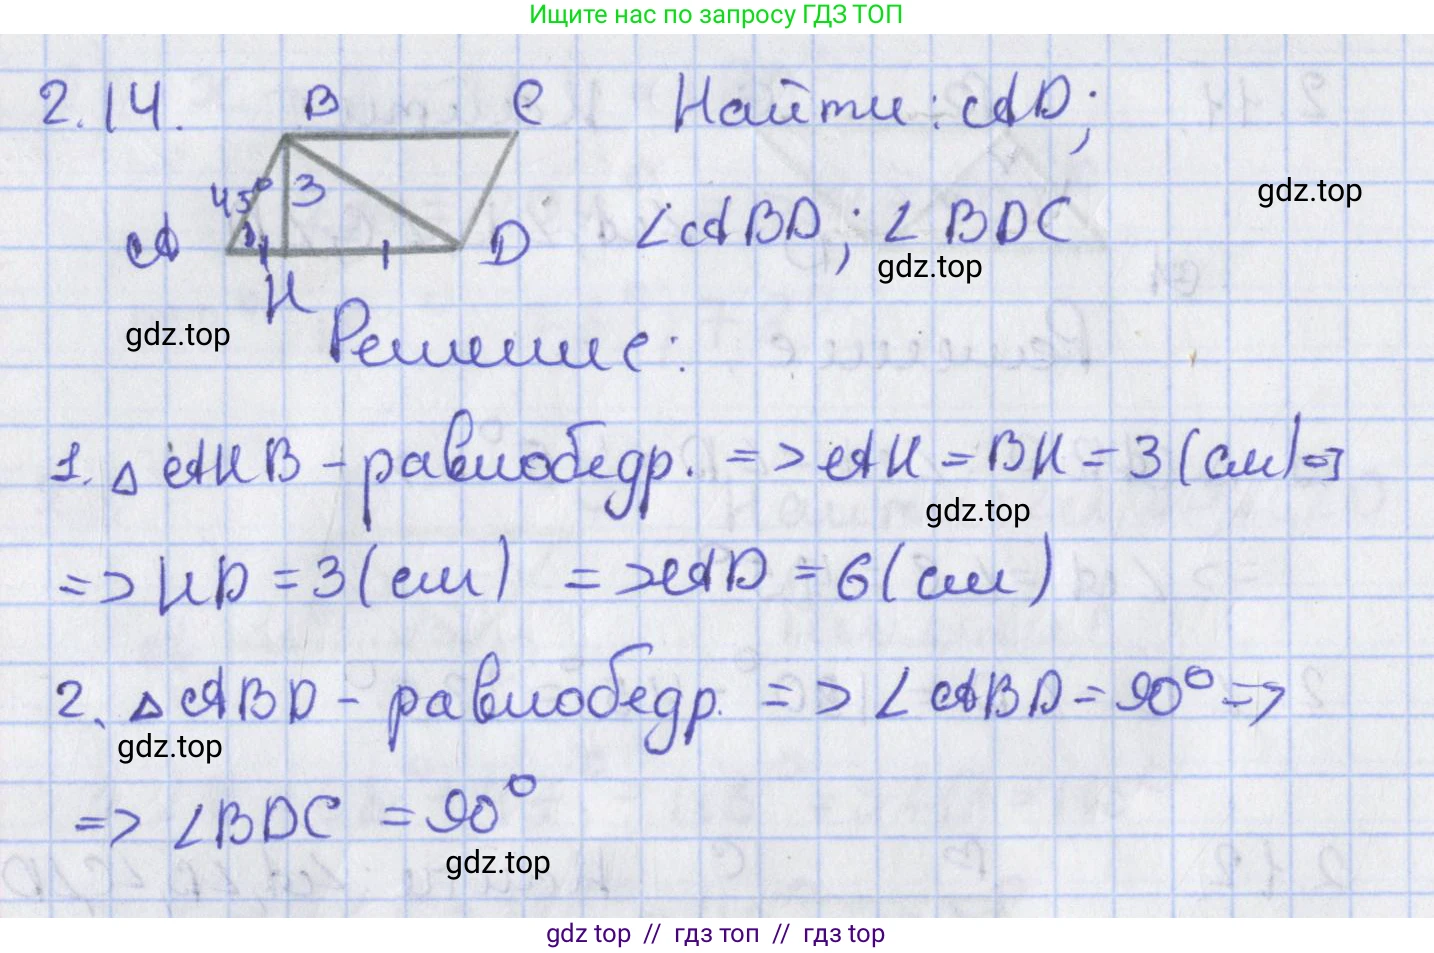 Ищите нас по запросу ГДЗ ТОП
2.14. B C Найти: AD;
45° 3
A H D ∠ABD; ∠BDC
gdz.top
gdz.top
gdz.top
Решение:
1. △ AHB - равнобедр. => AH = BH = 3 (см) =>
gdz.top
=> HD = 3 (см) => AD = 6 (см)
2. △ ABD - равнобедр. => ∠ABD = 90° =>
gdz.top
=> ∠BDC = 90°
gdz.top
gdz top // гдз топ // гдз top